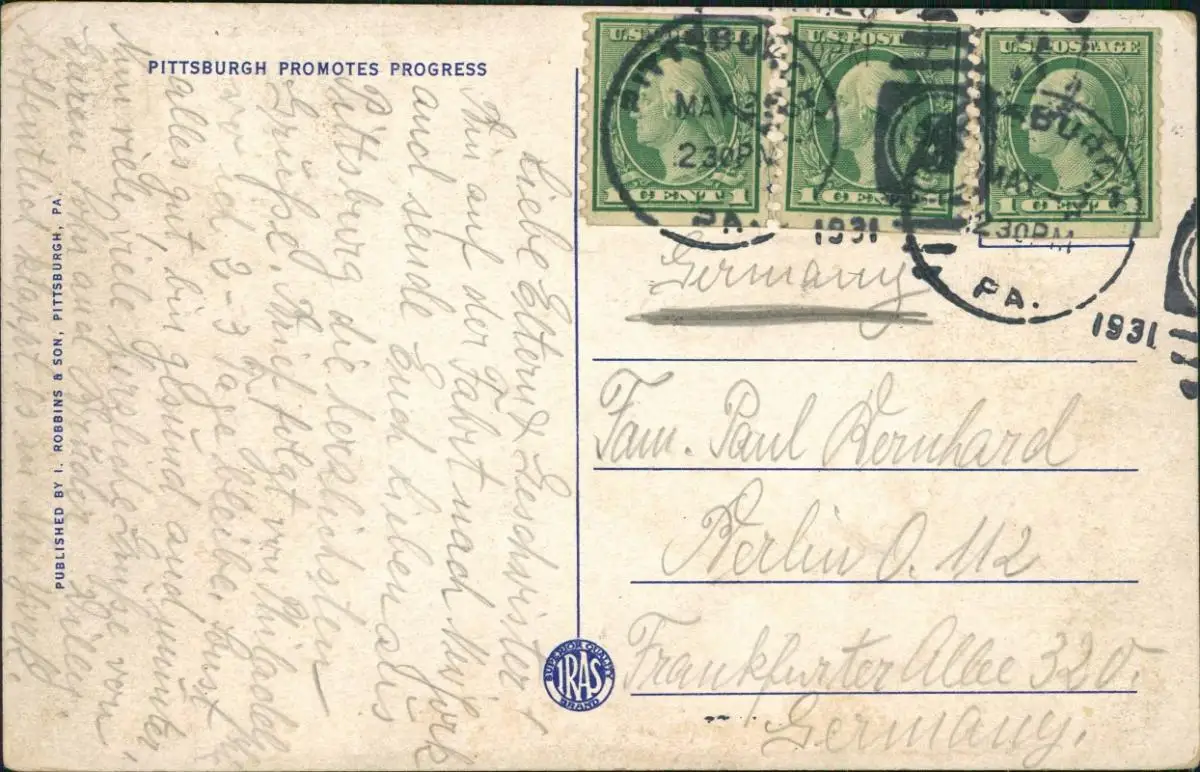 PITTSBURGH PROMOTES PROGRESS
PUBLISHED BY I. ROBBINS & SON, PITTSBURGH, PA.
Liebe Eltern & Geschwister!
Bin auf der Fahrt nach
und sende Euch Lieben aus
Pittsburg die herzlichsten
Grüße. Brief folgt von
wo 2-3 Tage bleibe. Sonst
alles gut, bin gesund und munter,
Nun viele, viele herzliche Grüße von
Eurem Sohn und Bruder Willy.
U.S. POSTAGE
1 CENT 1
U.S. POSTAGE
1 CENT 1
U.S. POSTAGE
1 CENT 1
PITTSBURGH
MAR
2 30 PM
PA.
1931
PITTSBURGH
MAR
2 30 PM
PA.
1931
Germany
Fam. Paul Bernhard
Berlin O. 112
Frankfurter Allee 320.
Germany.
SUPERIOR QUALITY
IRAS
BRAND